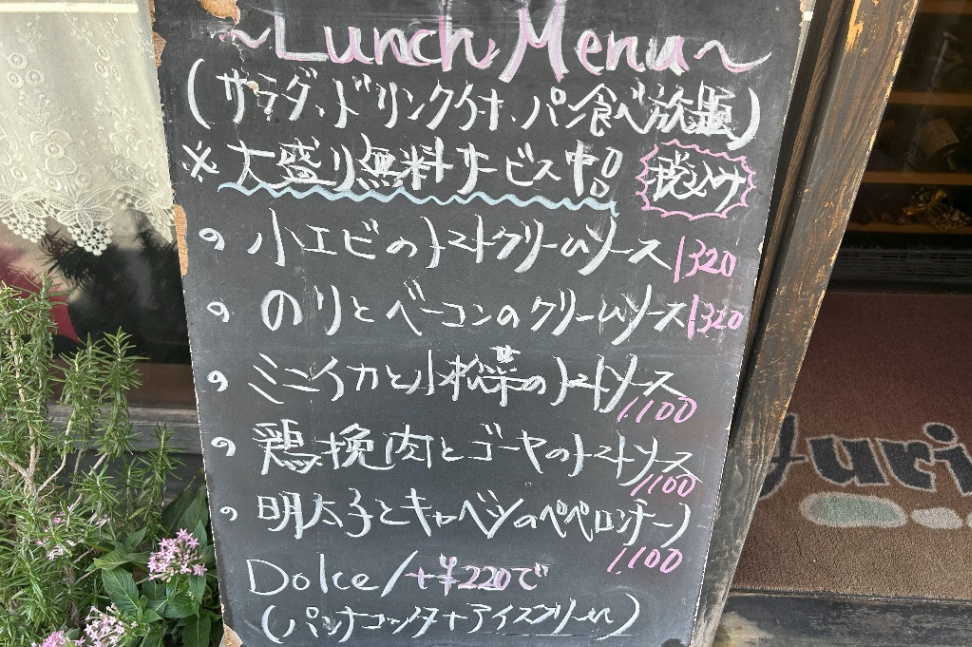 ~Lunch Menu~
(サラダ、ドリンク付、パン食べ放題)
※大盛り無料サービス中!! 税込み
• 小エビのトマトクリームソース 1320
• のりとベーコンのクリームソース 1320
• ミニイカと小松菜のトマトソース 1,100
• 鶏挽肉とゴーヤのトマトソース 1,100
• 明太子とキャベツのペペロンチーノ 1,100
Dolce/+¥220で
(パンナコッタ+アイスクリーム)